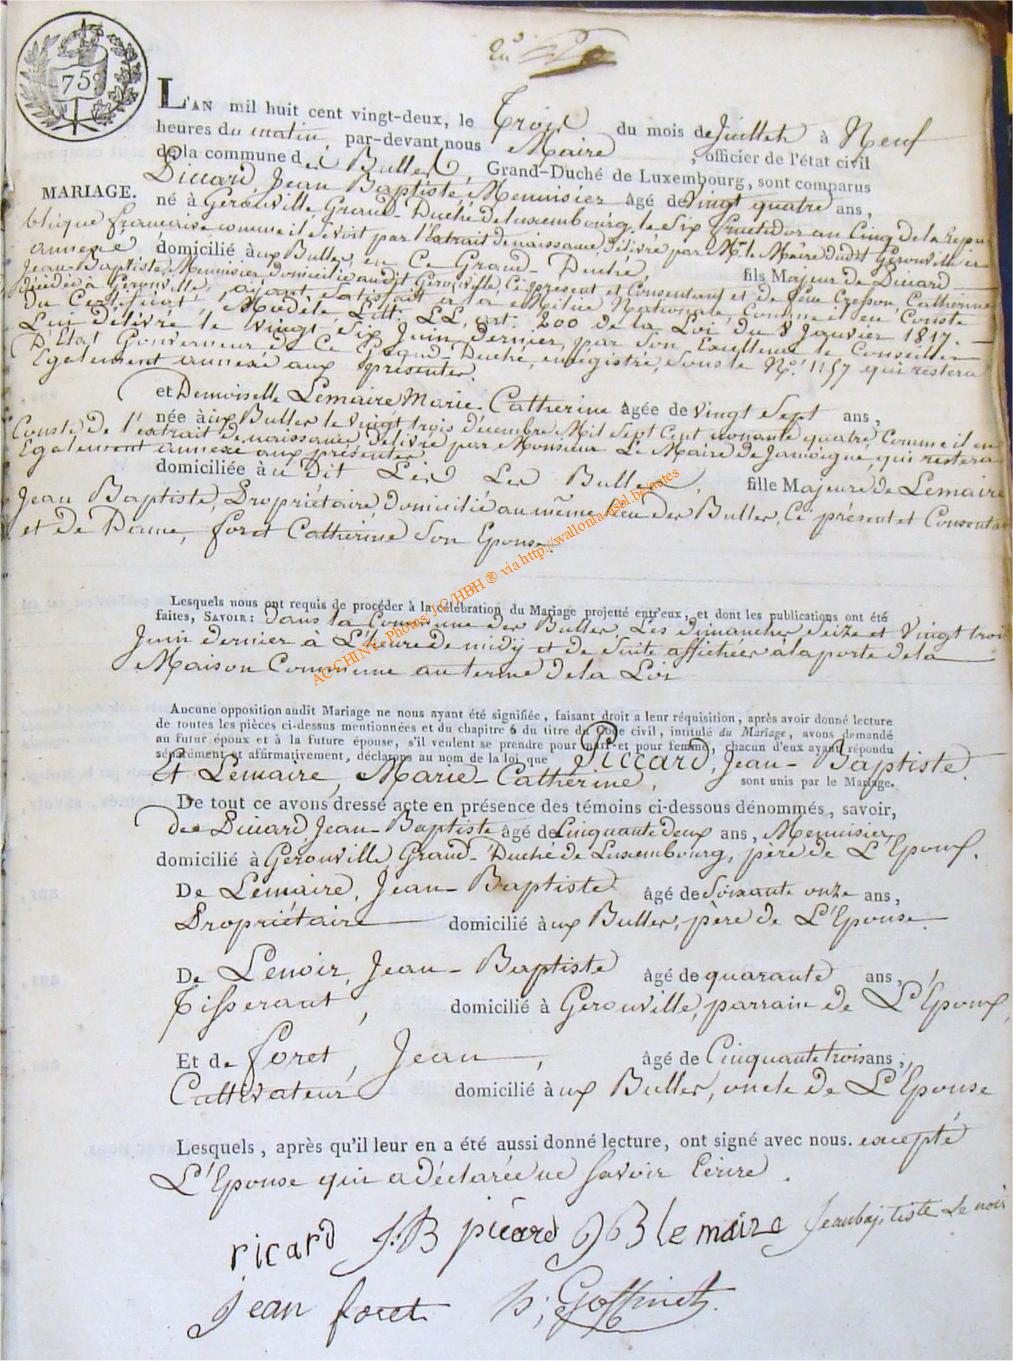 75c
L'AN mil huit cent vingt-deux, le Trois du mois de Juillet à Neuf
heures du matin, par-devant nous Maire, officier de l'état civil
de la commune des Bulles, Grand-Duché de Luxembourg, sont comparus
MARIAGE. Piccard, Jean Baptiste, Menuisier âgé de Vingt quatre ans,
né à Gérouville, Grand-Duché de Luxembourg, le Six Fructidor an Cinq de la Repu
blique francaise comme il se voit par l'Extrait de naissance, délivré par Mr. le Maire dudit Gerouville et
annexée domicilié aux Bulles, en Ce Grand-Duché, fils Majeur de Piccard
Jean-Baptiste, Menuisier domicilié audit Gerouville, Ce présent et Consentant et de feue Crespon, Catherine
décédée à Gerouville, ayant satisfait à la Milice Nationale, Comme il en Conste
du Certificat, Modèle Litt. LL, art. 200 de la Loi du 8 Janvier 1817.
Lui délivré le Vingt-Six Juin dernier, par Son Excellence le Conseiller
D'Etat Gouverneur de Ce Grand-Duché, enregistré, sous le No. 1157 qui restera
Egalement annexé aux présentes.
et Demoiselle Lemaire Marie-Catherine âgée de Vingt Sept ans,
née aux Bulles le Vingt trois décembre Mil Sept Cent nonante quatre Comme il en
Conste de l'extrait de naissance délivré par Monsieur Le Maire de Jamoigne, qui restera
Egalement annexé aux présentes
domiciliée au Dit Lieu des Bulles, fille Majeure de Lemaire
Jean Baptiste, Propriétaire, domicilié au même lieu des Bulles, Ce présent et Consentant
et de Dame, foret Catherine Son Epouse.
Lesquels nous ont requis de procéder à la célébration du Mariage projetté entr'eux, et dont les publications ont été
faites, SAVOIR: Dans la Commune des Bulles, Les dimanches Seize et Vingt trois
Juin dernier à L'heure de midy et de Suite affichées a la porte de la
Maison Commune au terme de la Loi
Aucune opposition audit Mariage ne nous ayant été signifiée, faisant droit a leur réquisition, après avoir donné lecture
de toutes les pièces ci-dessus mentionnées et du chapitre 6 du titre du Code civil, intitulé du Mariage, avons demandé
au futur époux et à la future épouse, s'il veulent se prendre pour mari et pour femme, chacun d'eux ayant répondu
séparément et affirmativement, déclarons au nom de la loi, que Piccard, Jean-Baptiste.
Et Lemaire, Marie-Catherine, sont unis par le Mariage.
De tout ce avons dressé acte en présence des témoins ci-dessous dénommés, savoir,
de Piccard, Jean-Baptiste âgé de Cinquante deux ans, Menuisier
domicilié à Gerouville Grand-Duché de Luxembourg, père de L'Epoux.
De Lemaire, Jean-Baptiste âgé de Soixante onze ans,
Propriétaire domicilié aux Bulles, père de L'Epouse.
De Lenoir, Jean-Baptiste âgé de quarante ans,
Tisserant, domicilié à Gerouville, parrain de L'Epoux,
Et de foret, Jean, âgé de Cinquante trois ans,
Cultivateur domicilié aux Bulles, oncle de L'Epouse
Lesquels, après qu'il leur en a été aussi donné lecture, ont signé avec nous. excepté
L'Epouse qui a déclarée ne Savoir Ecrire.
ricard J:B picard JB Lemaire Jeanbaptiste Le noir
jean foret h; Goffinet
AC CHINY - Photos: J.G/HBH ® via http://wallonia-asbl.be/actes